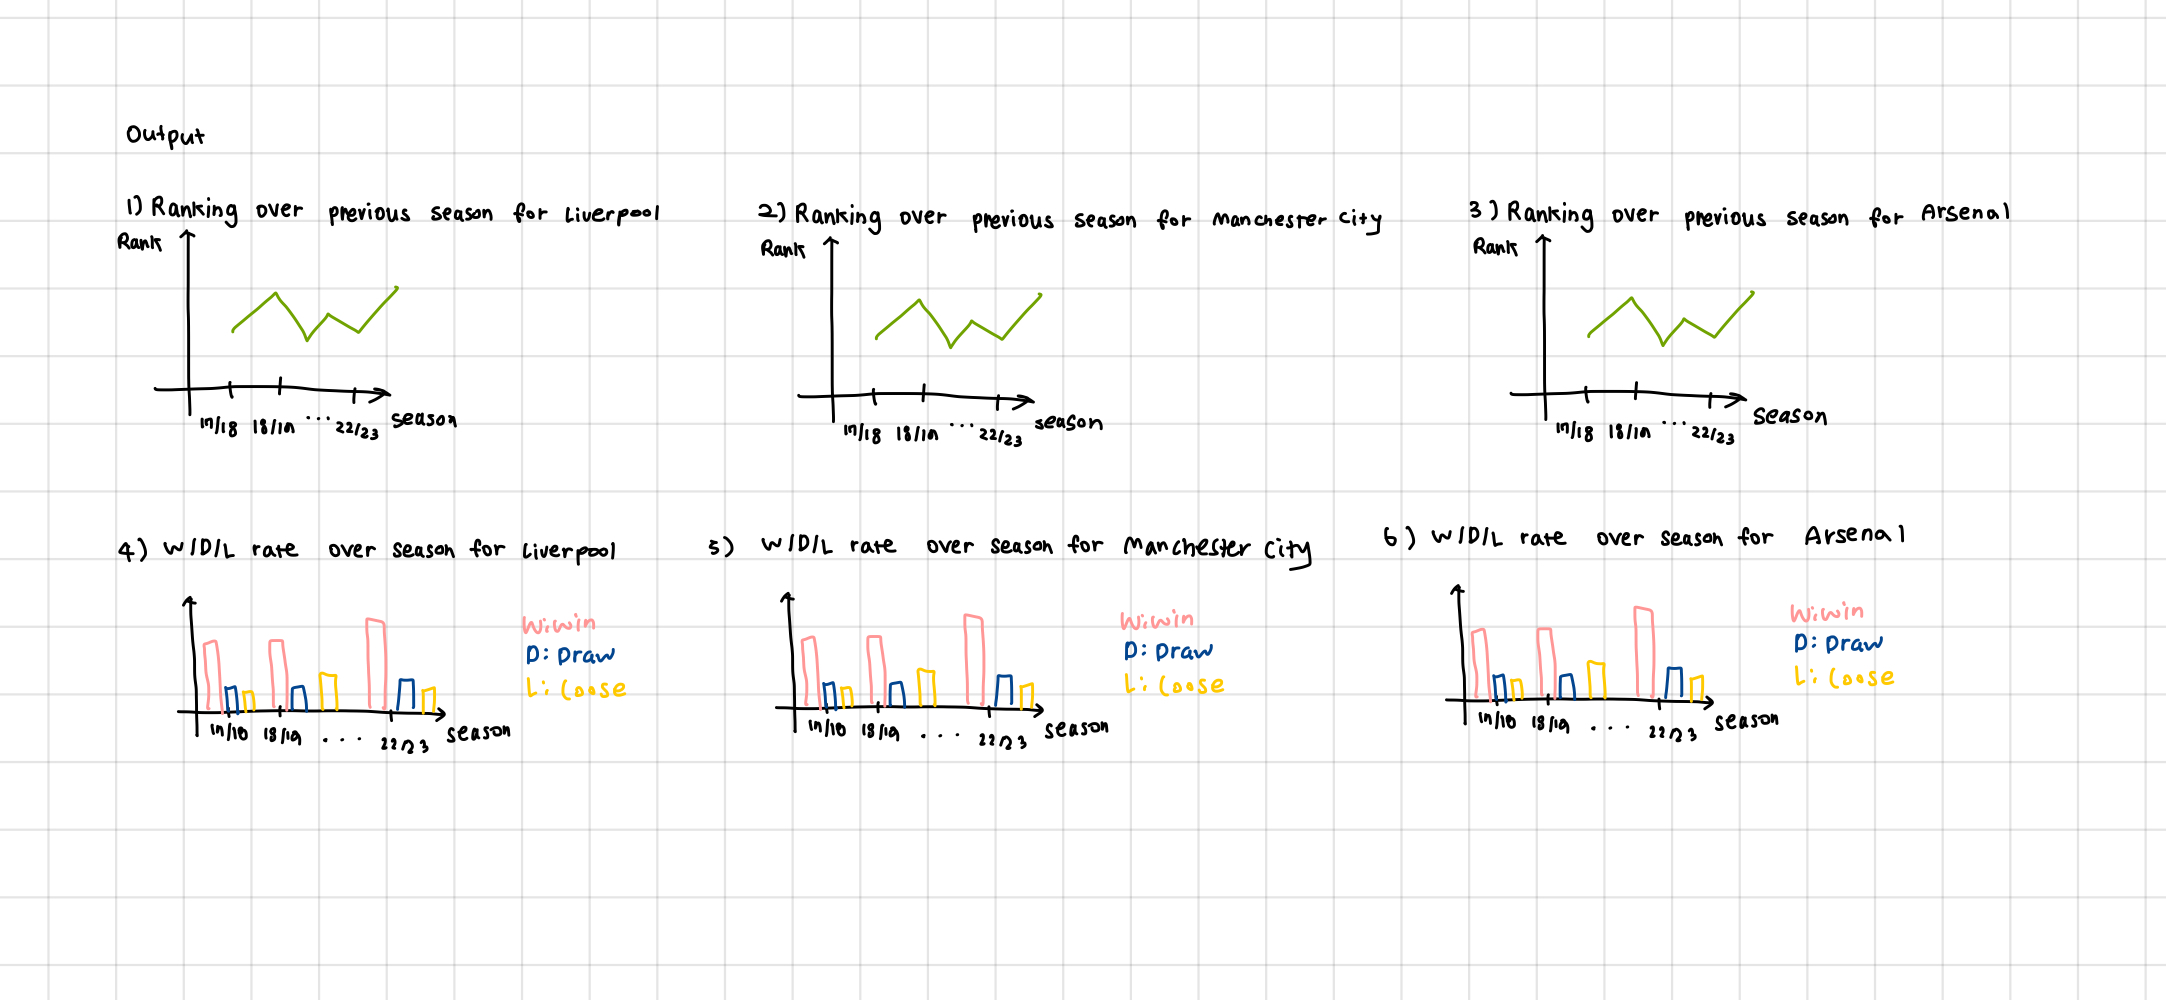 Output
1) Ranking over previous season for Liverpool
Rank
17/18 18/19 ... 22/23 season
2) Ranking over previous season for Manchester City
Rank
17/18 18/19 ... 22/23 season
3) Ranking over previous season for Arsenal
Rank
17/18 18/19 ... 22/23 season
4) W/D/L rate over season for Liverpool
W: Win
D: Draw
L: Loose
17/18 18/19 .... 22/23 season
5) W/D/L rate over season for Manchester City
W: Win
D: Draw
L: Loose
17/18 18/19 .... 22/23 season
6) W/D/L rate over season for Arsenal
W: Win
D: Draw
L: Loose
17/18 18/19 .... 22/23 season